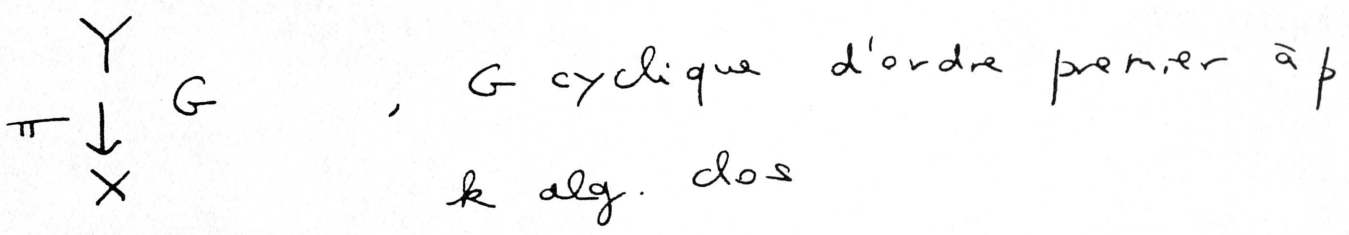 Y
π ↓ G , G cyclique d'ordre premier à p
X k alg. clos